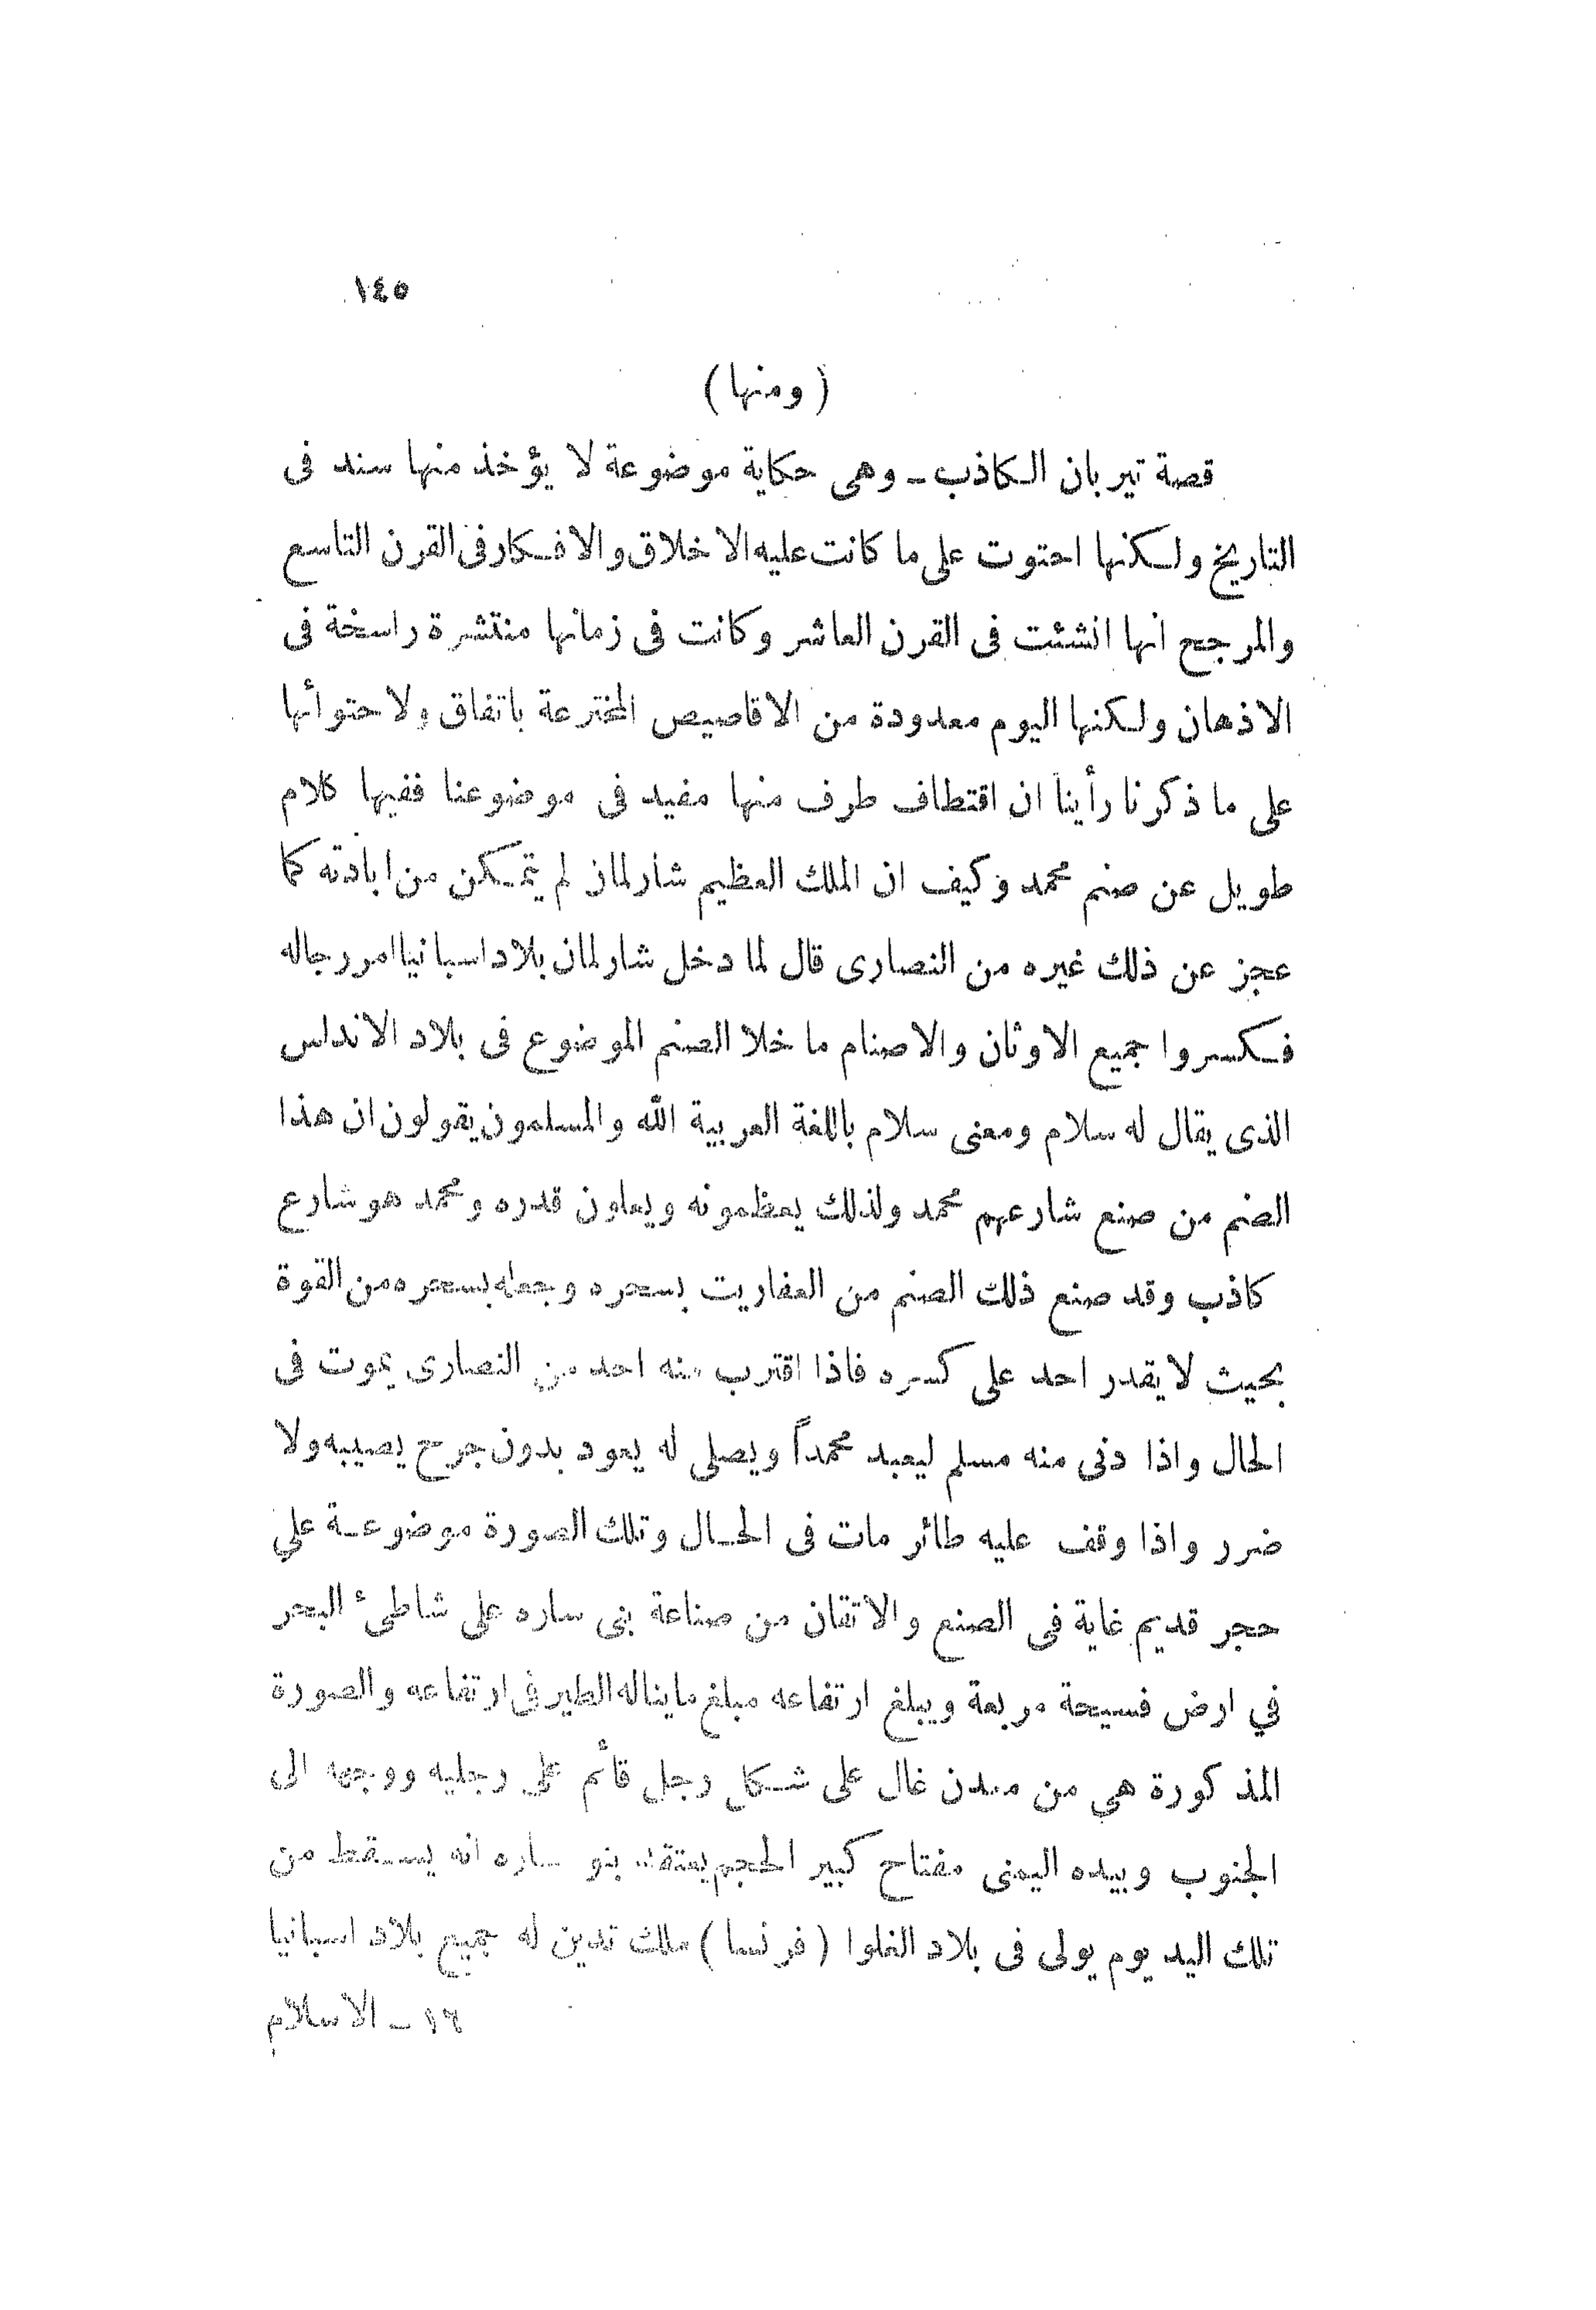 ١٤٥
( ومنها )
قصة تيربان الكاذب ـ وهى حكاية موضوعة لا يؤخذ منها سند فى
التاريخ ولكنها احتوت على ما كانت عليه الاخلاق والافكار فى القرن التاسع
والمرجح انها انشئت فى القرن العاشر وكانت فى زمانها منتشرة راسخة فى
الاذهان ولكنها اليوم معدودة من الاقاصيص المخترعة باتفاق ولاحتوائها
على ما ذكرنا رأينا ان اقتطاف طرف منها مفيد فى موضوعنا ففيها كلام
طويل عن صنم محمد وكيف ان الملك العظيم شارلمان لم يتمكن من ابادته كما
عجز عن ذلك غيره من النصارى قال لما دخل شارلمان بلاد اسبانيا امر رجاله
فكسروا جميع الاوثان والاصنام ما خلا الصنم الموضوع فى بلاد الاندلس
الذى يقال له سلام ومعنى سلام باللغة العربية الله والمسلمون يقولون ان هذا
الصنم من صنع شارعهم محمد ولذلك يعظمونه ويعلون قدره ومحمد هو شارع
كاذب وقد صنع ذلك الصنم من العفاريت بسحره وجعله بسحره من القوة
بحيث لا يقدر احد على كسره فاذا اقترب منه احد من النصارى يموت فى
الحال واذا دنى منه مسلم ليعبد محمداً ويصلى له يعود بدون جرح يصيبه ولا
ضرر واذا وقف عليه طائر مات فى الحال وتلك الصورة موضوعة علي
حجر قديم غاية فى الصنع والاتقان من صناعة بنى ساره على شاطىء البحر
في ارض فسيحة مربعة ويبلغ ارتفاعه مبلغ ما يناله الطير فى ارتفاعه والصورة
المذكورة هي من معدن غال على شكل رجل قائم على رجليه ووجهه الى
الجنوب وبيده اليمنى مفتاح كبير الحجم يعتقد بنو ساره انه يسقط من
تلك اليد يوم يولى فى بلاد الغلوا ( فرنسا ) ملك تدين له جميع بلاد اسبانيا
١٦ ـ الاسلام